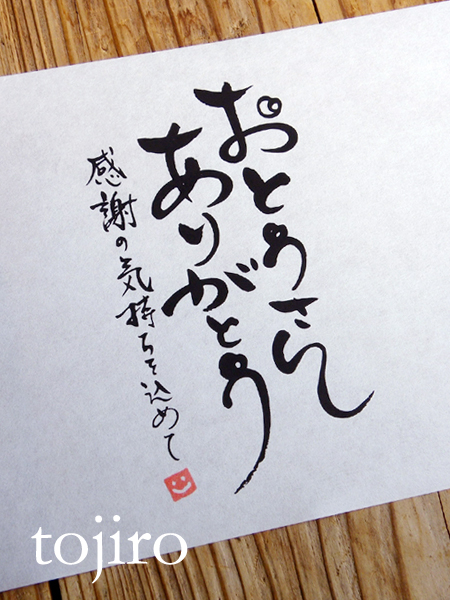 おとうさん
ありがとう
感謝の気持ちを込めて
tojiro